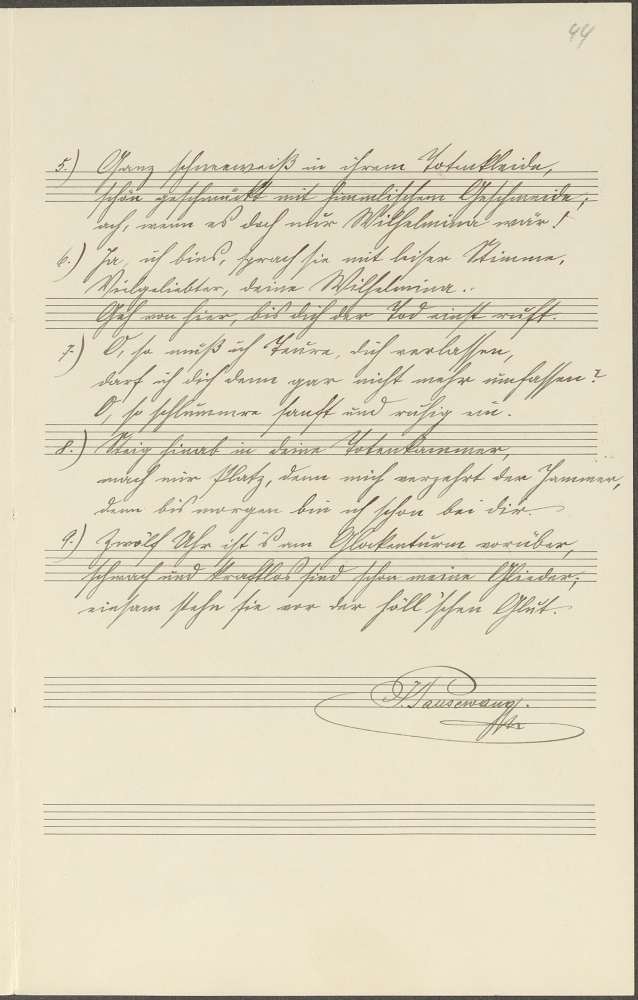 44
5.) Ganz schneeweiß in ihrem Totenkleide,
schön geschmückt mit himmlischem Geschmeide;
ach, wenn es doch nur Wilhelmina wär!
6.) Ja, ich bins, sprach sie mit leiser Stimme,
Vielgeliebter, deine Wilhelmina..
Geh von hier, bis dich der Tod einst ruft.
7.) O, so muß ich Teure, dich verlassen,
darf ich dich denn gar nicht mehr umfassen?
O, so schlummre sanft und ruhig ein.
8.) Steig hinab in deine Totenkammer,
mach mir Platz, denn mich verzehrt der Jammer,
denn bis morgen bin ich schon bei dir.
9.) Zwölf Uhr ist's am Glockenturm vorüber,
schwach und kraftlos sind schon meine Glieder;
einsam stehn sie vor der höll'schen Glut.
Pausewang.